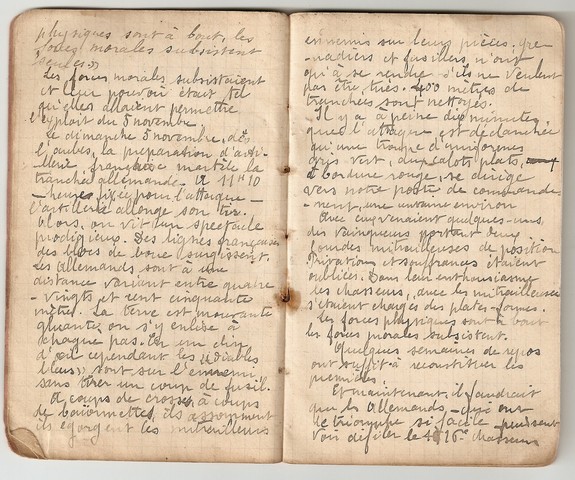 physiques sont à bout, les
forces morales subsistent
seules »
Les forces morales subsistaient
et leur pouvoir était tel
qu'elles allaient permettre
l'exploit du 5 novembre.
Le dimanche 5 novembre, dès
l'aube, la préparation d'arti-
llerie française martèle la
tranchée allemande. A 11h10
- heure fixée pour l'attaque -
l'artillerie allonge son tir.
Alors, on vit un spectacle
prodigieux. Des lignes françaises
des blocs de boue surgissent.
Les Allemands sont à une
distance variant entre quatre
-vingts et cent cinquante
mètres. La terre est mouvante
gluante, on s'y enlise à
chaque pas. En un clin
d'œil cependant les « diables
bleus » sont sur l'ennemi
sans tirer un coup de fusil.
A coups de crosses, à coups
de baïonnettes, ils assomment
ils égorgent les mitrailleurs
ennemis sur leurs pièces ; gre-
nadiers et fusiliers n'ont
qu'à se rendre s'ils ne veulent
pas être tués. 400 mètres de
tranchées sont nettoyés.
Il y a à peine dix minutes
que l'attaque est déclanchée
qu'une troupe d'uniformes
gris vert, aux calots plats,
à bordure rouge, se dirige
vers notre poste de commande-
ment, une centaine environ
Avec eux venaient quelques-uns
des vainqueurs portant deux
lourdes mitrailleuses de position
Privations et souffrances étaient
oubliées. Dans leur enthousiasme
les chasseurs, avec les mitrailleuses
s'étaient chargés des plates-formes.
Les forces physiques sont à bout
les forces morales subsistent.
Quelques semaines de repos
ont suffit à reconstituer les
premières
Et maintenant, il faudrait
que les Allemands - qui ont
le triomphe si facile - puissent
voir défiler le 16e chasseurs